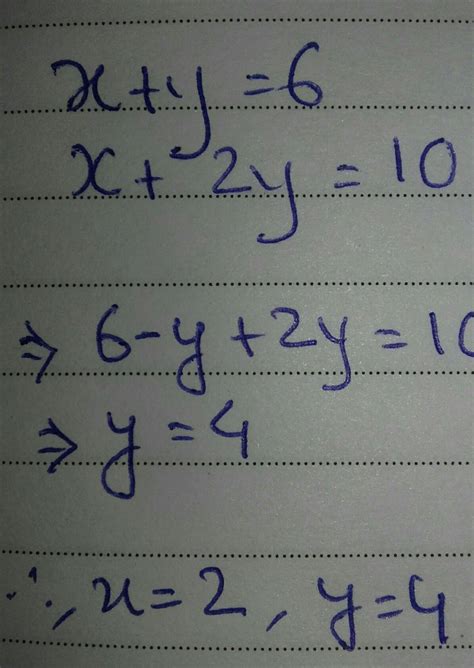 x+y=6
x+2y=10
⇒ 6-y+2y=10
⇒ y=4
∴, x=2, y=4